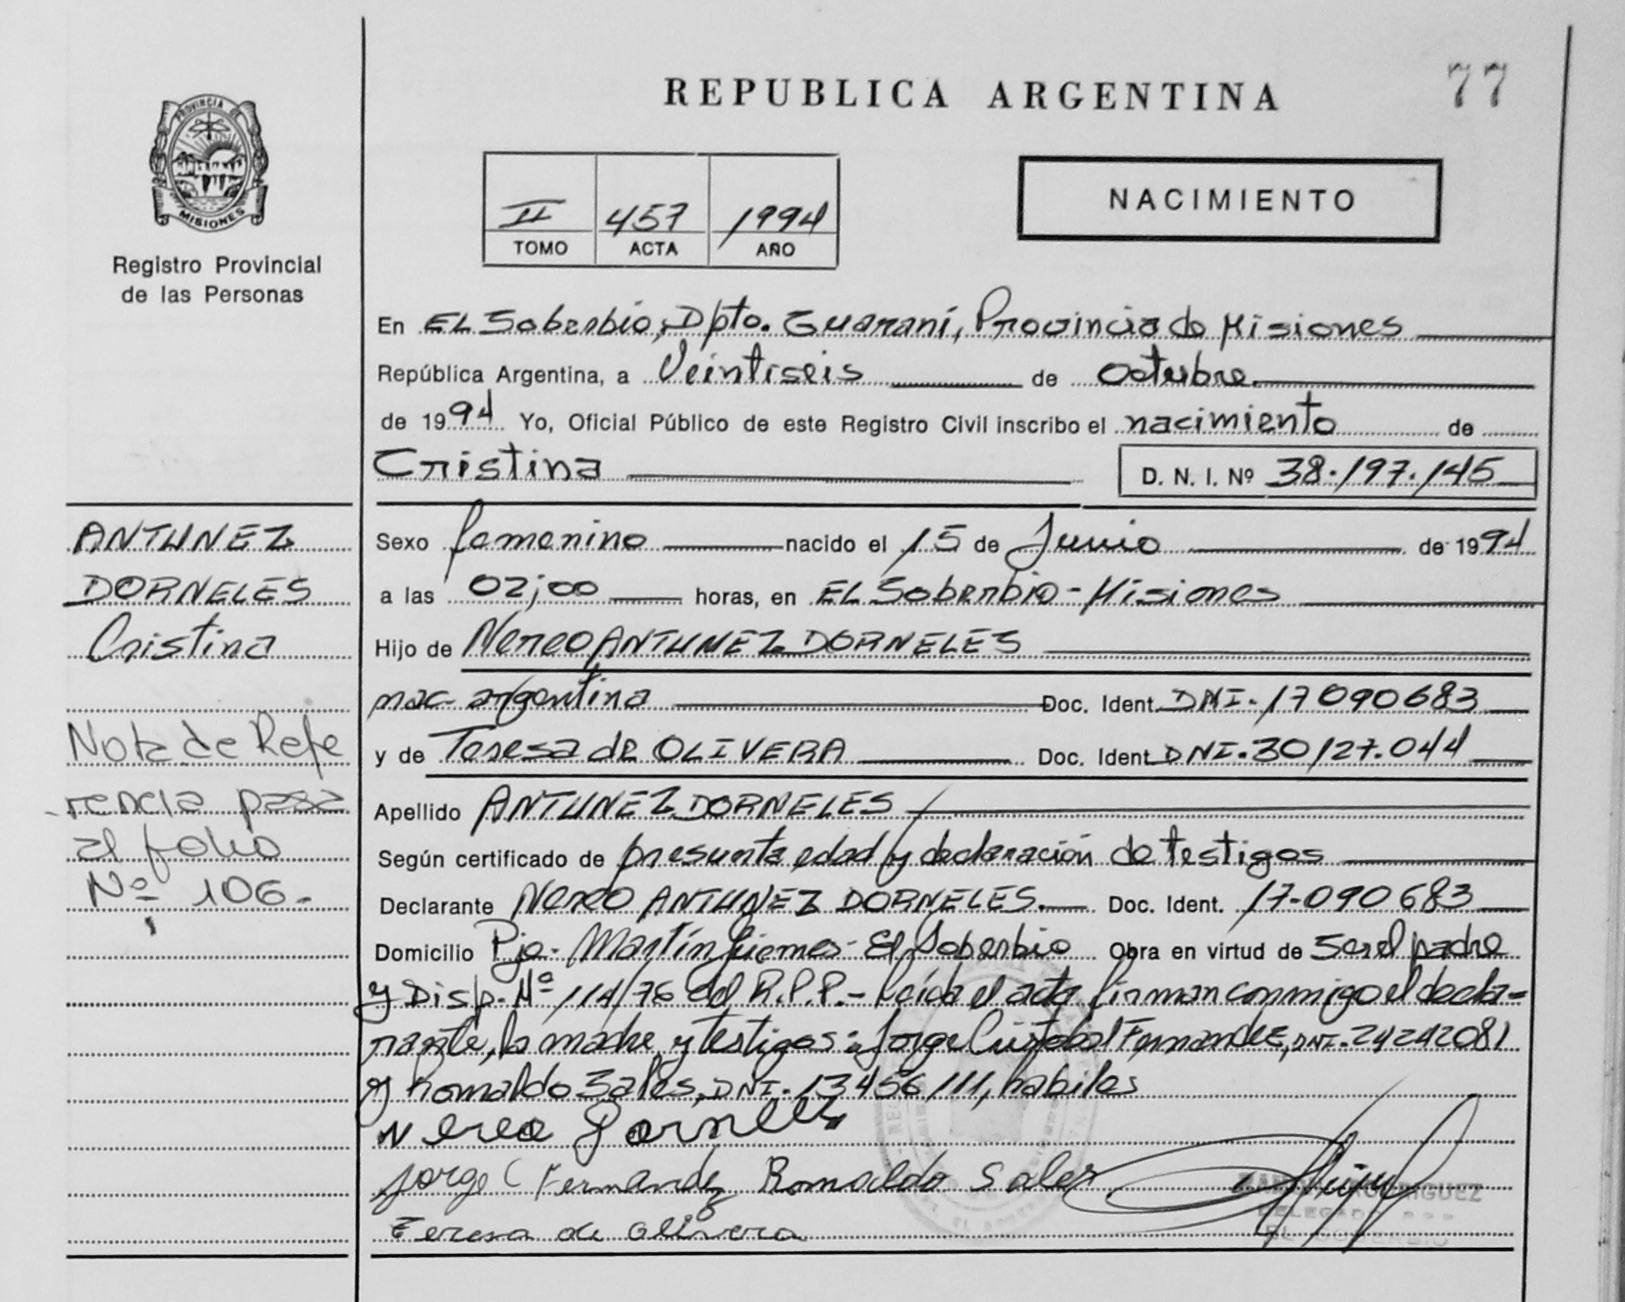 REPUBLICA ARGENTINA
77
PROVINCIA DE
MISIONES
Registro Provincial
de las Personas
II 457 1994
TOMO ACTA AÑO
NACIMIENTO
En EL Soberbio, Dpto. Guaraní, Provincia de Misiones
República Argentina, a Veintiseis de octubre
de 1994 Yo, Oficial Público de este Registro Civil inscribo el nacimiento de
Cristina D. N. I. Nº 38.197.145
ANTUNEZ
DORNELES
Cristina
Nota de Refe
rencia pasa
al folio
Nº 106.-
Sexo femenino nacido el 15 de Junio de 1994
a las 02;00 horas, en EL Soberbio - Misiones
Hijo de Nereo ANTUNEZ DORNELES
nac- argentina Doc. Ident. DNI. 17090683
y de Teresa de OLIVERA Doc. Ident. DNI. 30127.044
Apellido ANTUNEZ DORNELES
Según certificado de presunta edad y declaración de testigos
Declarante Nereo ANTUNEZ DORNELES. Doc. Ident. 17-090683
Domicilio Pje- Martín Güemes - El Soberbio Obra en virtud de Ser el padre
y Disp. Nº 114/76 del R.P.P.- Leída el acta firman conmigo el decla-
rante, la madre y testigos: Jorge Cristobal Fernandez, DNI. 24242081
y Romaldo Sales, DNI. 13456111, habiles
Nereo Dornelles
Jorge C Fernandez Romaldo Sales
RODRIGUEZ
DELEGADO
EL SOBERBIO
Teresa de Olivera